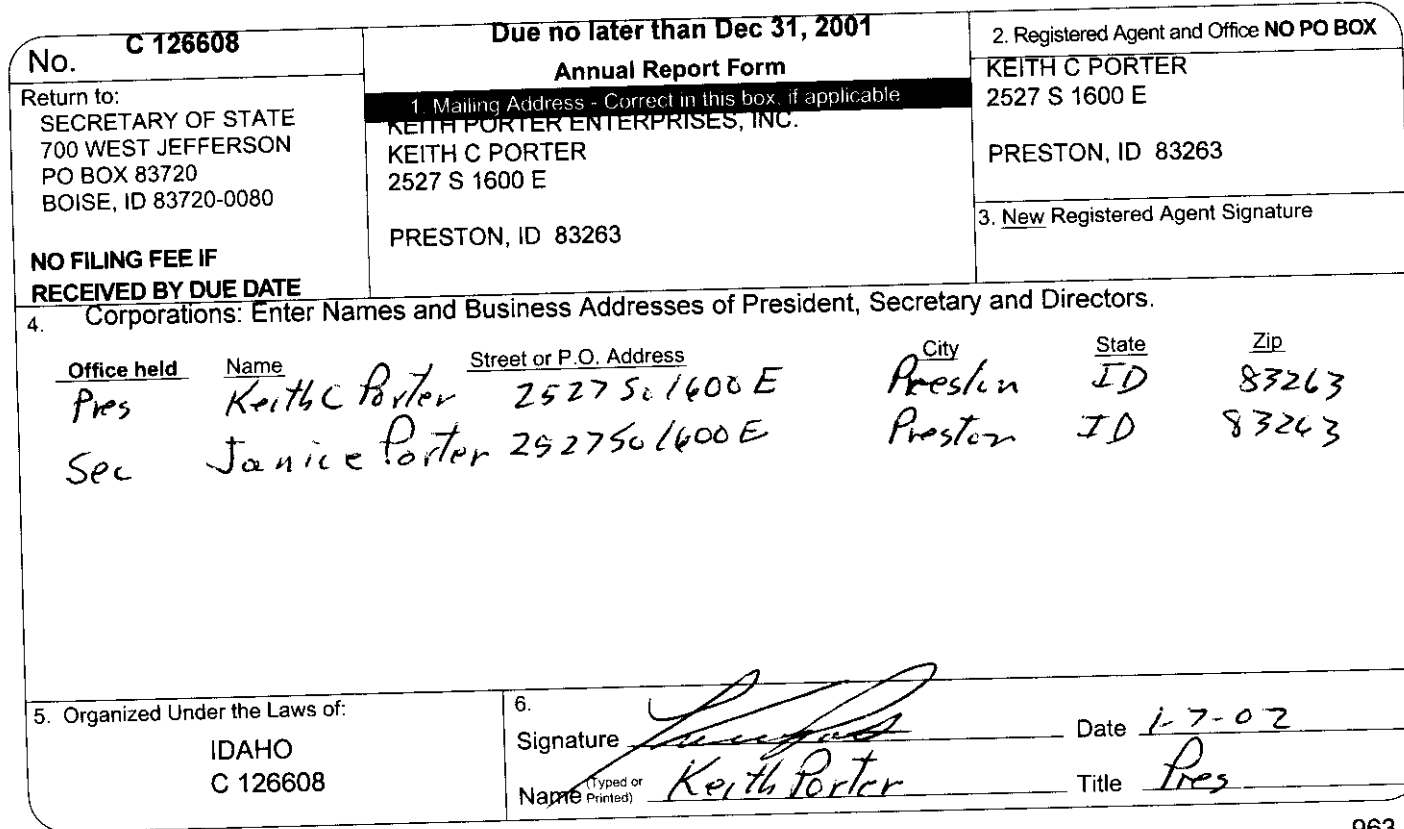 No. C 126608
Return to:
SECRETARY OF STATE
700 WEST JEFFERSON
PO BOX 83720
BOISE, ID 83720-0080
NO FILING FEE IF
RECEIVED BY DUE DATE
Due no later than Dec 31, 2001
Annual Report Form
1. Mailing Address - Correct in this box, if applicable
KEITH PORTER ENTERPRISES, INC.
KEITH C PORTER
2527 S 1600 E
PRESTON, ID 83263
2. Registered Agent and Office NO PO BOX
KEITH C PORTER
2527 S 1600 E
PRESTON, ID 83263
3. New Registered Agent Signature
4. Corporations: Enter Names and Business Addresses of President, Secretary and Directors.
Office held Name Street or P.O. Address City State Zip
Pres Keith C Porter 2527 So 1600 E Preston ID 83263
Sec Janice Porter 2527 So 1600 E Preston ID 83263
5. Organized Under the Laws of:
IDAHO
C 126608
6.
Signature Date 1-7-02
Name (Typed or Printed) Keith Porter Title Pres
963